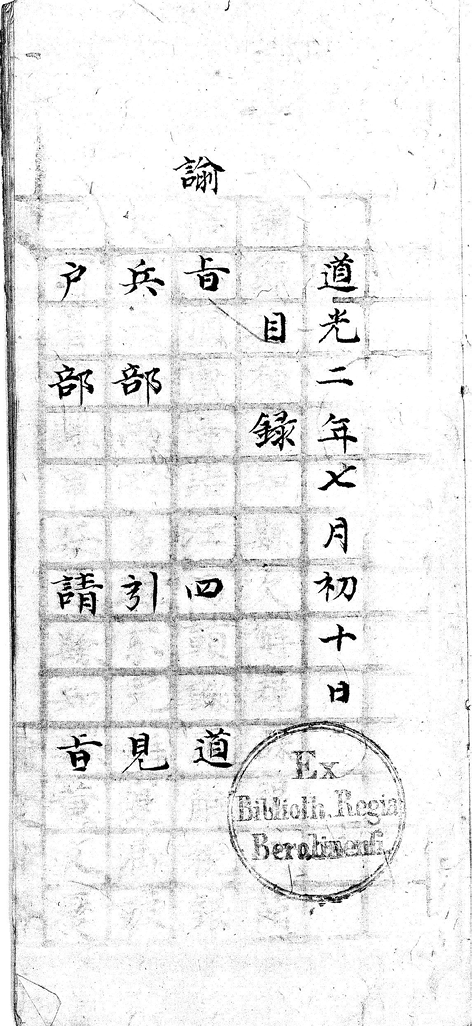 道光二年七月初十日
目錄
諭旨四道
兵部引見
戶部請旨
Ex
Biblioth. Regia
Berolinensi